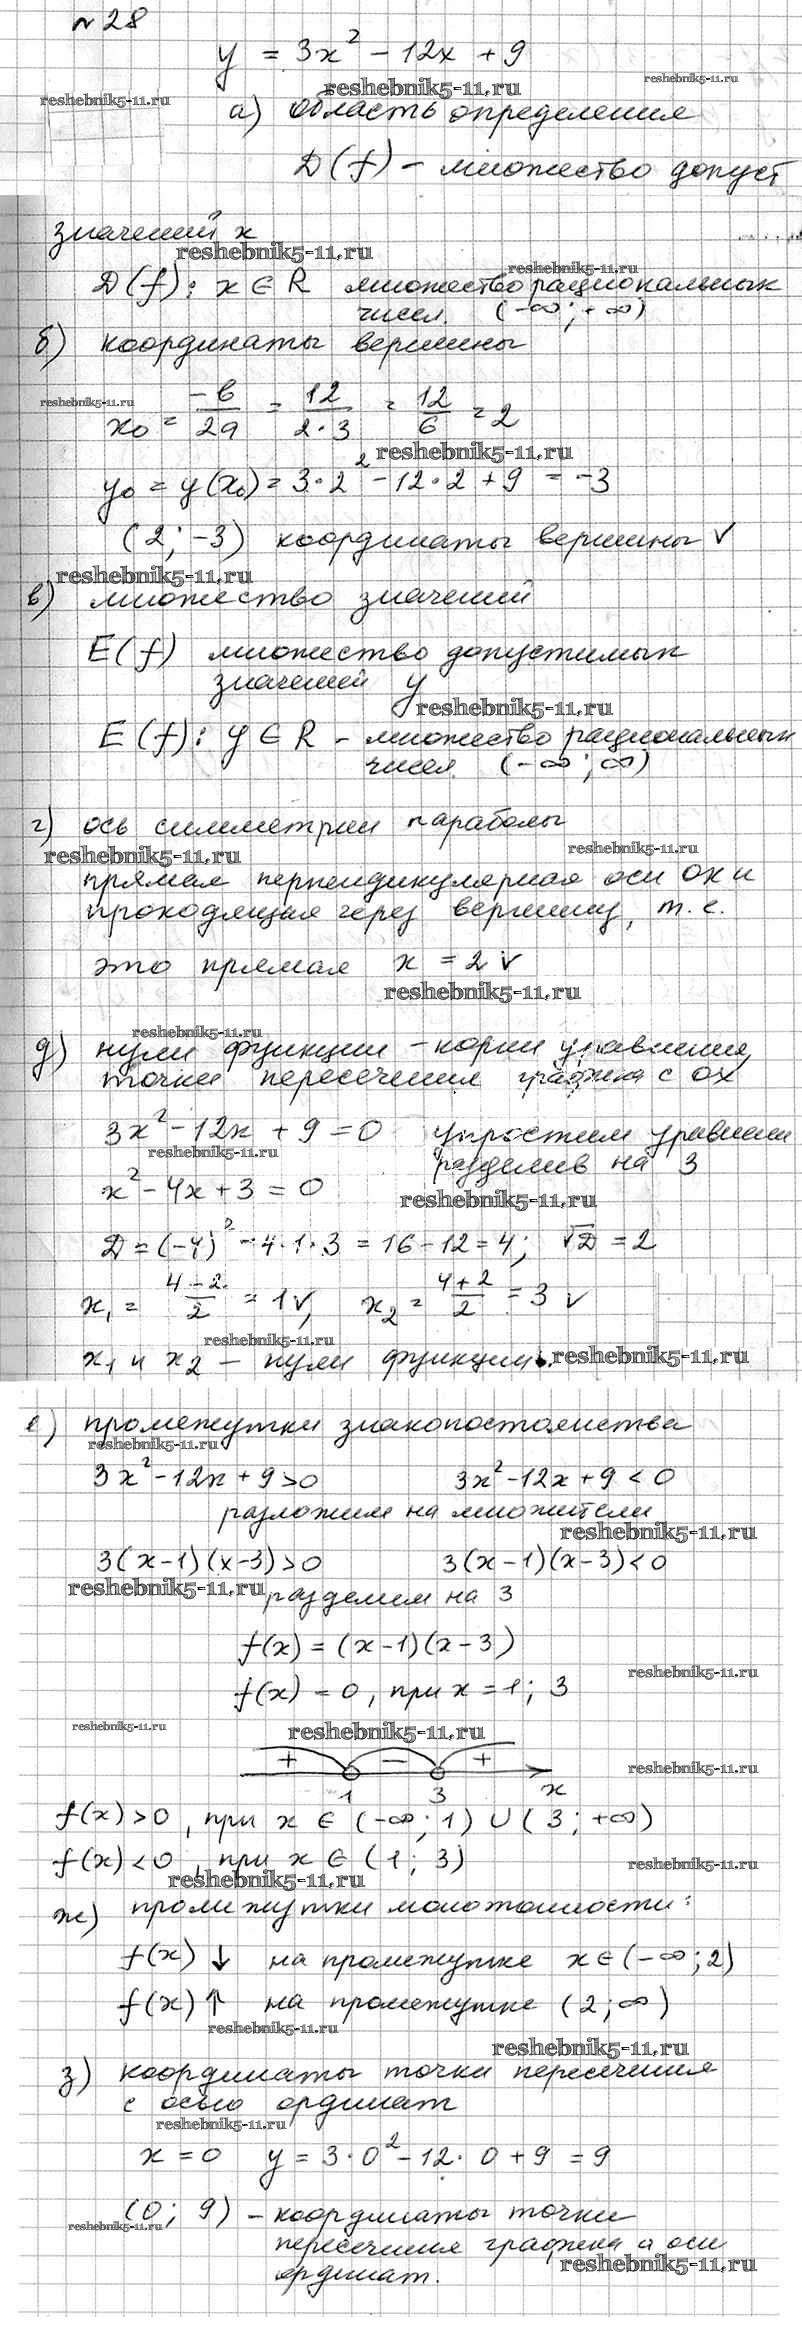 №28
y = 3x² - 12x + 9
reshebnik5-11.ru
reshebnik5-11.ru
reshebnik5-11.ru
а) область определения
D(f) - множество допуст
значений x
reshebnik5-11.ru
reshebnik5-11.ru
D(f): x ∈ R множество рациональных
чисел. (-∞; +∞)
б) координаты вершины
reshebnik5-11.ru
x₀ = -b/2a = 12/2·3 = 12/6 = 2
reshebnik5-11.ru
y₀ = y(x₀) = 3·2² - 12·2 + 9 = -3
(2; -3) координаты вершины ✓
reshebnik5-11.ru
в) множество значений
E(f) множество допустимых
значений y
reshebnik5-11.ru
E(f): y ∈ R - множество рациональных
чисел. (-∞; ∞)
г) ось симметрии параболы
reshebnik5-11.ru
reshebnik5-11.ru
прямая перпендикулярная оси ОХ и
проходящая через вершину, т.е.
это прямая x = 2 ✓
reshebnik5-11.ru
reshebnik5-11.ru
д) нули функции - корни уравнения,
точки пересечения графика с ОХ
3x² - 12x + 9 = 0 упростим уравнени
reshebnik5-11.ru
разделив на 3
x² - 4x + 3 = 0
reshebnik5-11.ru
D = (-4)² - 4·1·3 = 16 - 12 = 4; √D = 2
x₁ = 4-2/2 = 1 ✓, x₂ = 4+2/2 = 3 ✓
reshebnik5-11.ru
x₁ и x₂ - нули функции.
reshebnik5-11.ru
е) промежутки знакопостоянства
reshebnik5-11.ru
3x² - 12x + 9 > 0 3x² - 12x + 9 < 0
разложим на множители
reshebnik5-11.ru
3(x-1)(x-3) > 0 3(x-1)(x-3) < 0
reshebnik5-11.ru
разделим на 3
f(x) = (x-1)(x-3)
reshebnik5-11.ru
f(x) = 0, при x = 1; 3
reshebnik5-11.ru
reshebnik5-11.ru
+ - +
reshebnik5-11.ru
1 3 x
f(x) > 0, при x ∈ (-∞; 1) ∪ (3; +∞)
f(x) < 0, при x ∈ (1; 3)
reshebnik5-11.ru
reshebnik5-11.ru
ж) промежутки монотонности:
f(x) ↓ на промежутке x ∈ (-∞; 2)
f(x) ↑ на промежутке (2; ∞)
reshebnik5-11.ru
reshebnik5-11.ru
з) координаты точки пересечения
с осью ординат
reshebnik5-11.ru
x = 0 y = 3·0² - 12·0 + 9 = 9
(0; 9) - координаты точки
reshebnik5-11.ru
пересечения графика и оси
reshebnik5-11.ru
ординат.